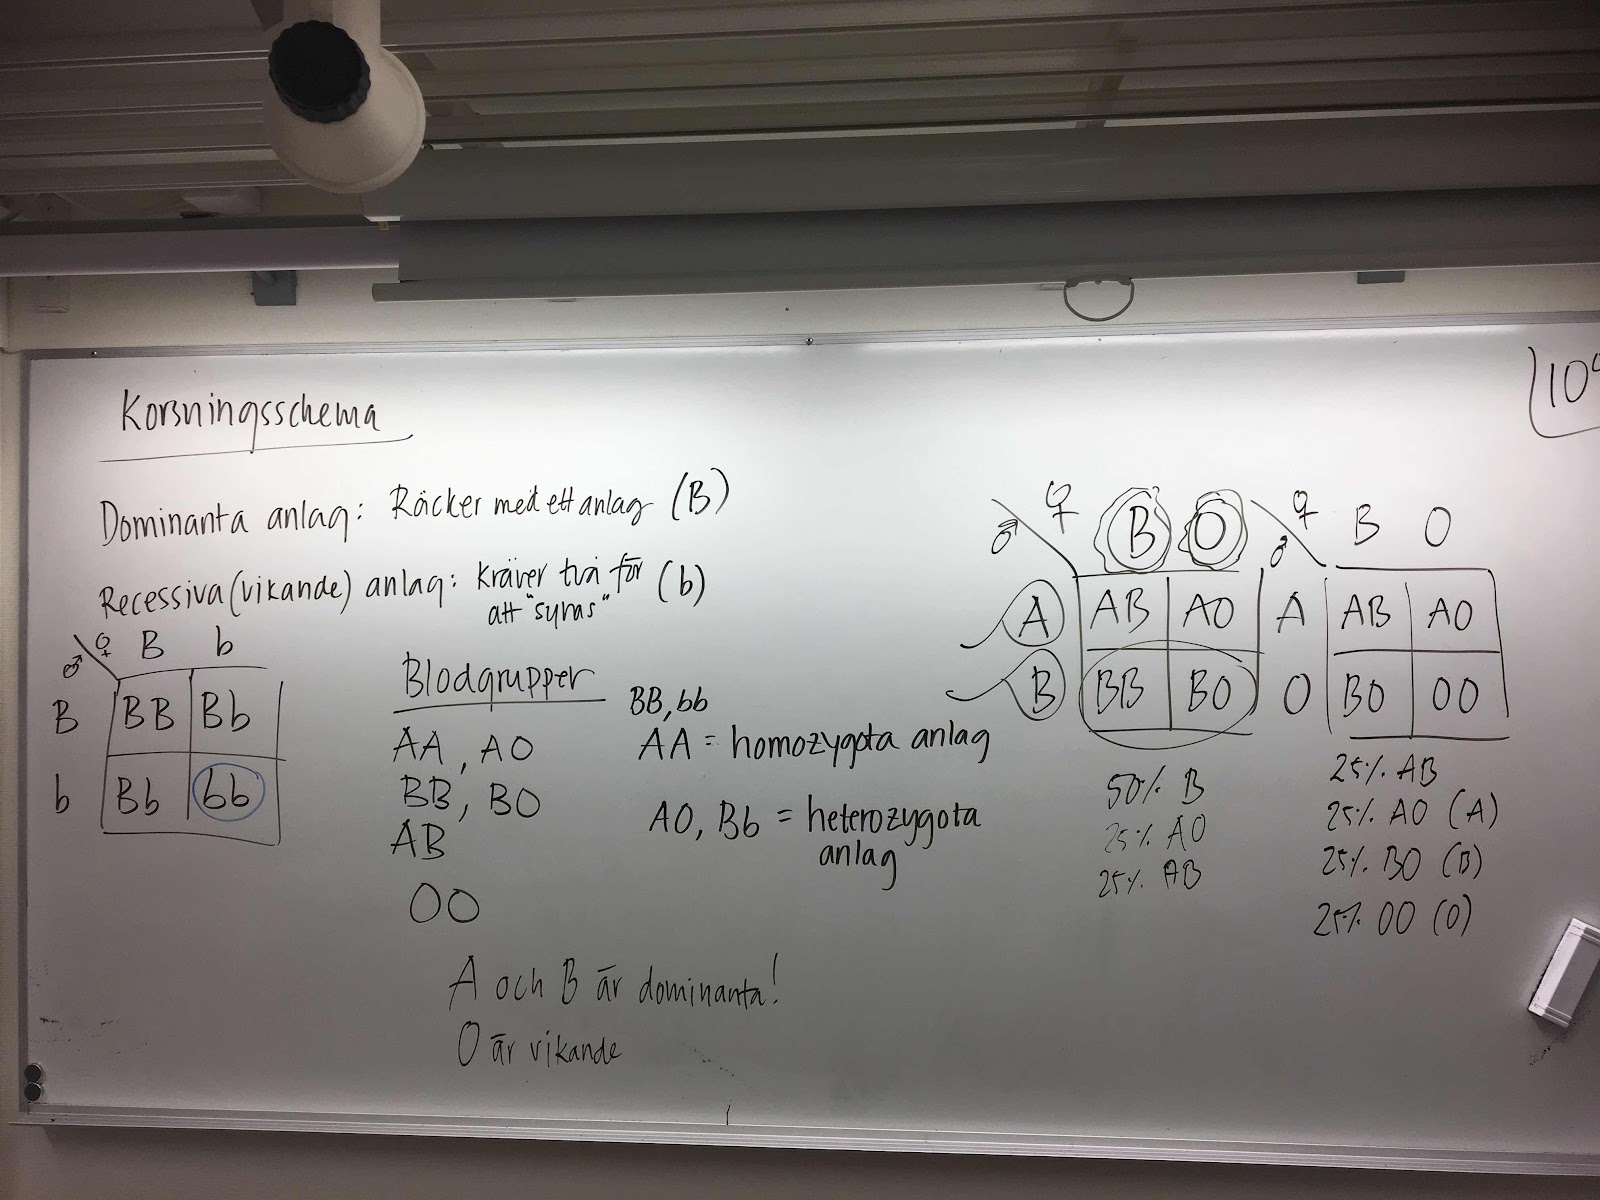 Korsningsschema
10
Dominanta anlag: Räcker med ett anlag (B)
Recessiva (vikande) anlag: kräver två för (b)
att "synas"
♂ ♀ B b
B BB Bb
b Bb bb
Blodgrupper
AA, AO
BB, BO
AB
OO
BB, bb
AA = homozygota anlag
AO, Bb = heterozygota
anlag
A och B är dominanta!
O är vikande
♂ ♀ B O
A AB AO
B BB BO
50% B
25% AO
25% AB
♂ ♀ B O
A AB AO
O BO OO
25% AB
25% AO (A)
25% BO (B)
25% OO (O)